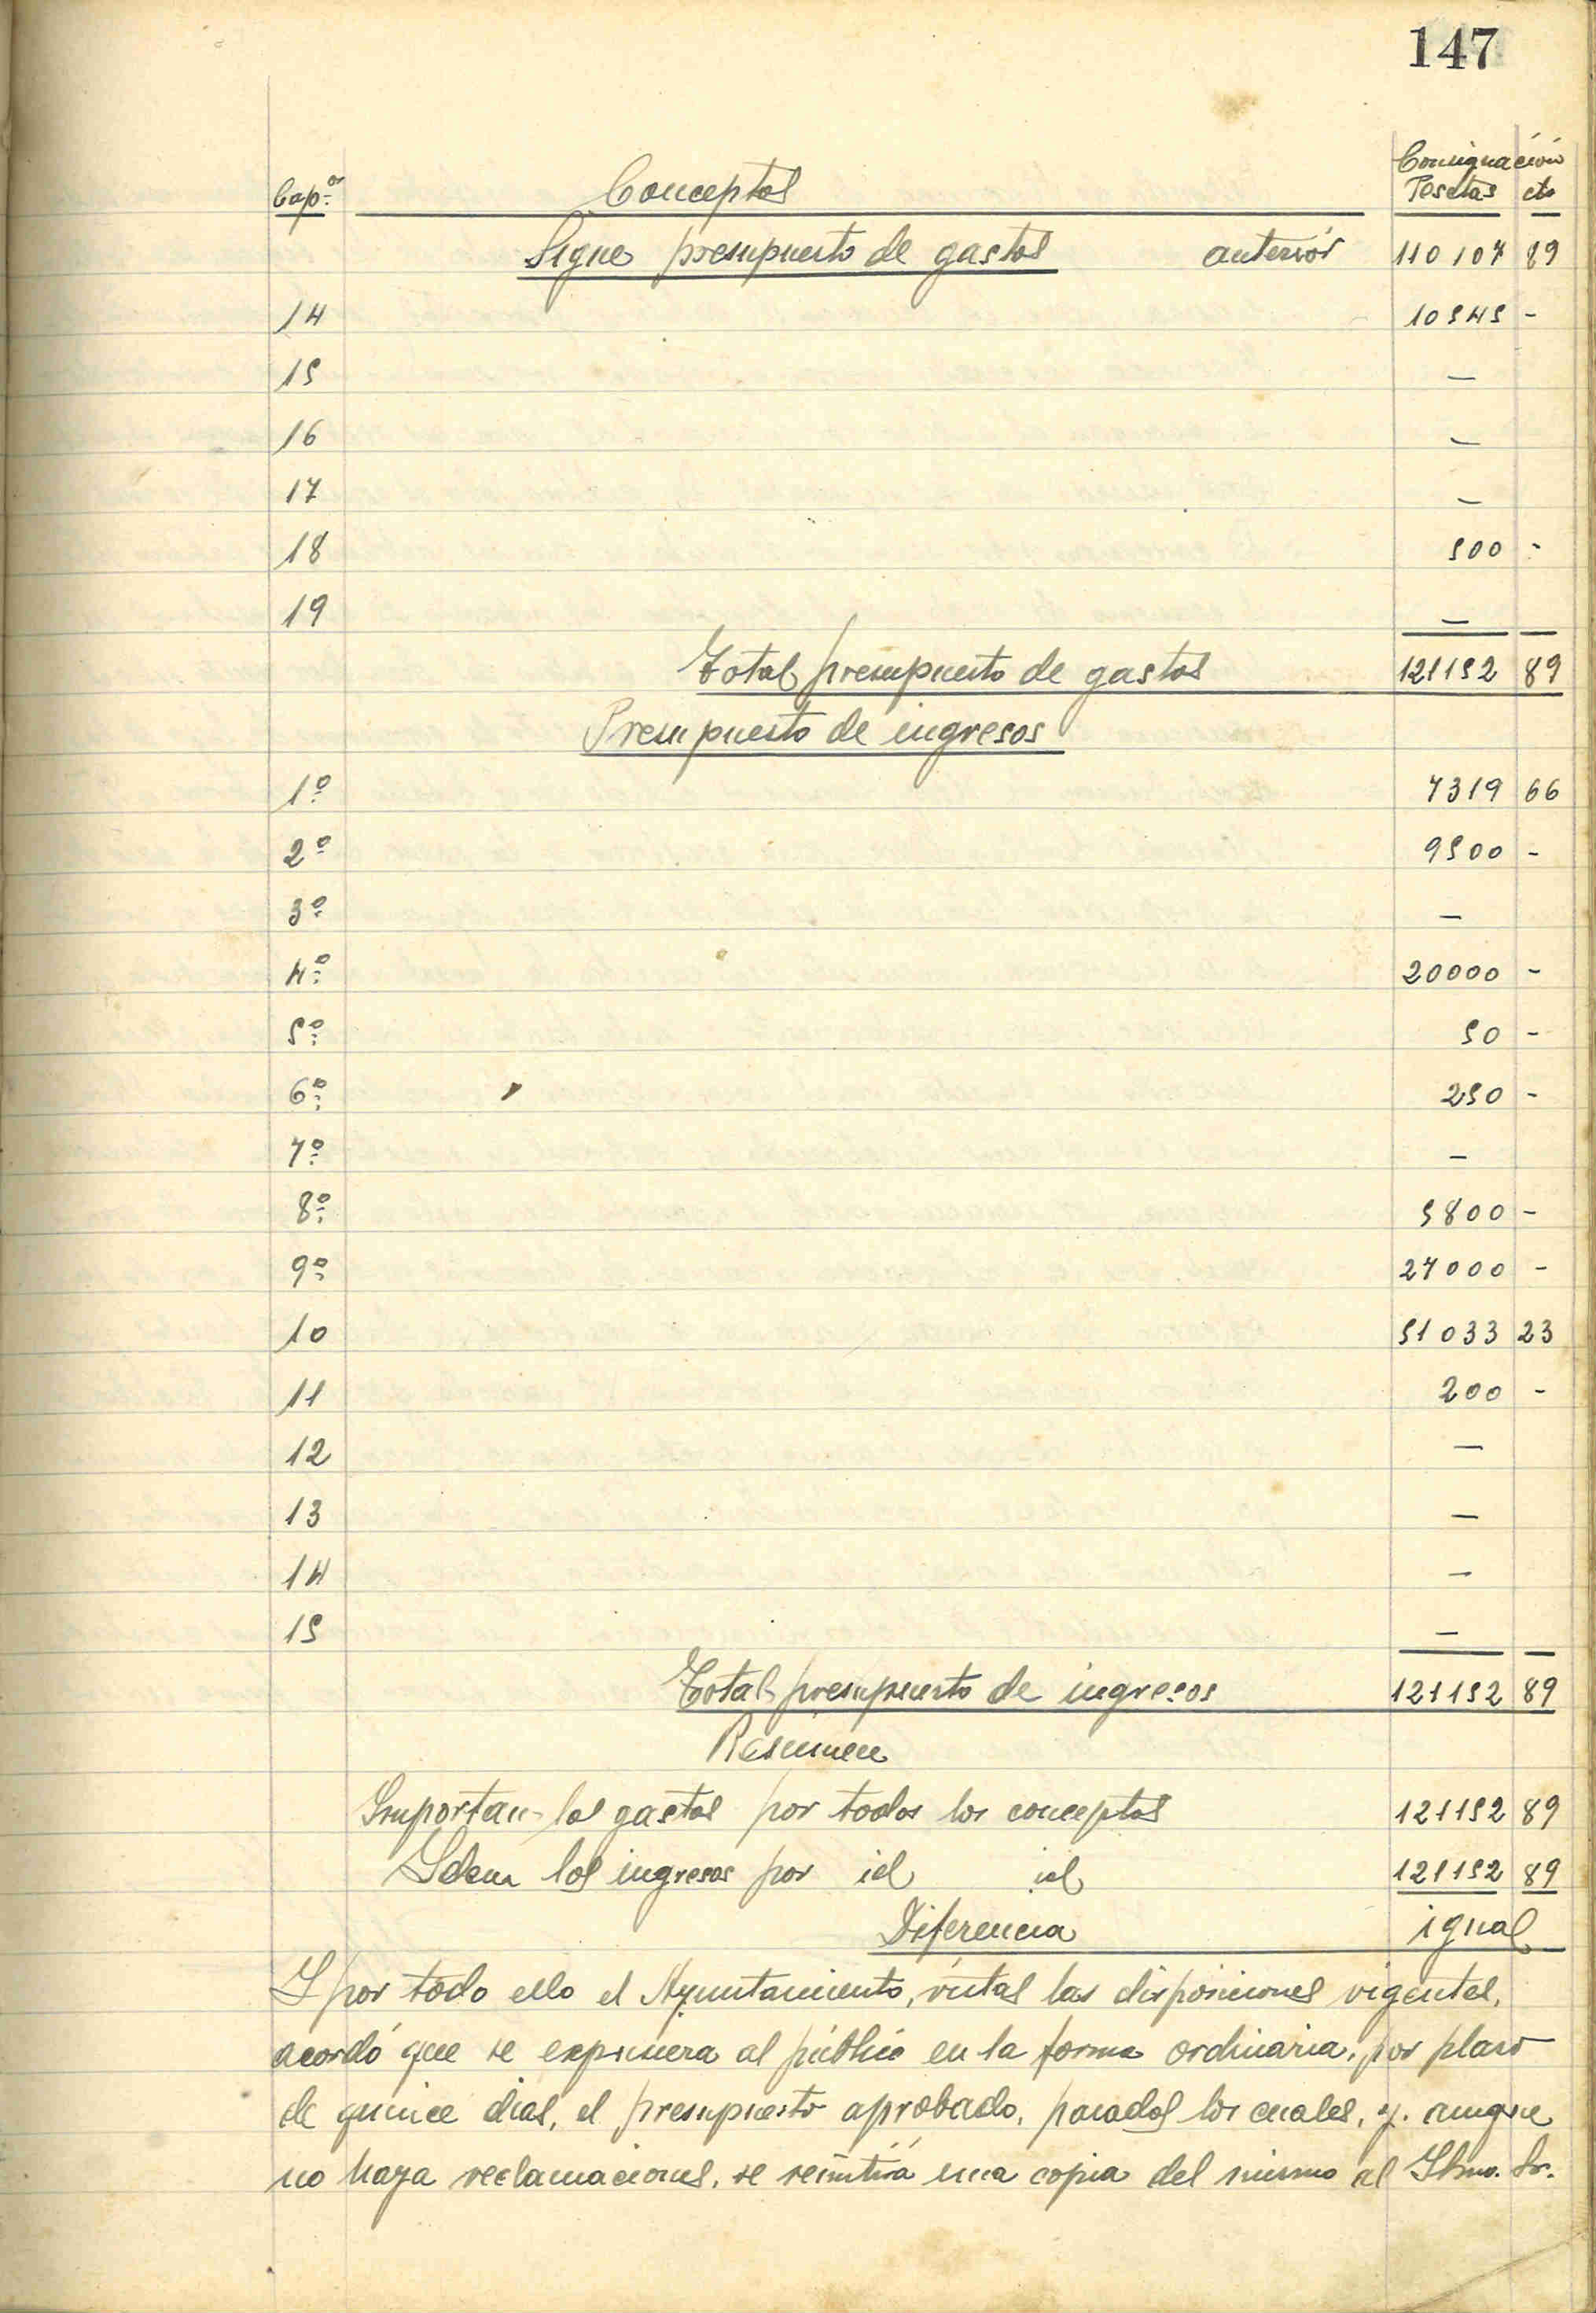 147
Consignación
Cap.os Conceptos Pesetas cts
Sigue presupuesto de gastos anteriór 110107 89
14 10545 -
15 —
16 —
17 —
18 500 -
19 —
Total presupuesto de gastos 121152 89
Presupuesto de ingresos
1º 7319 66
2º 9500 -
3º —
4º 20000 -
5º 50 -
6º 250 -
7º —
8º 5800 -
9º 27000 -
10 51033 23
11 200 -
12 —
13 —
14 —
15 —
Total presupuesto de ingresos 121152 89
Resumen
Importan los gastos por todos los conceptos 121152 89
Idem los ingresos por id id 121152 89
Diferencia igual
Y por todo ello el Ayuntamiento, vistas las disposiciones vigentes,
acordó que se expusiera al público en la forma ordinaria, por plazo
de quince dias, el presupuesto aprobado, pasados los cuales, y aunque
no haya reclamaciones, se remitirá una copia del mismo al Iltmo. Sr.